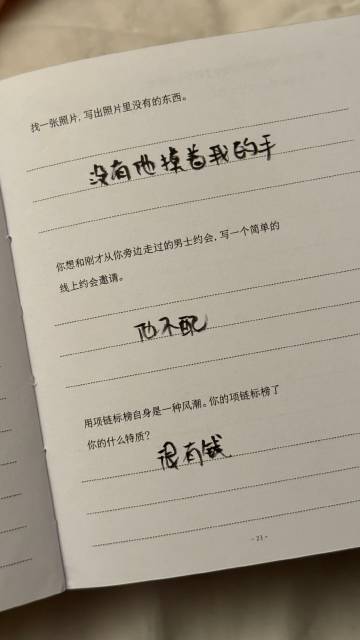 找一张照片，写出照片里没有的东西。
没有他揉着我的手
你想和刚才从你旁边走过的男士约会，写一个简单的
线上约会邀请。
他不配
用项链标榜自身是一种风潮。你的项链标榜了
你的什么特质？
很有钱
- 21 -